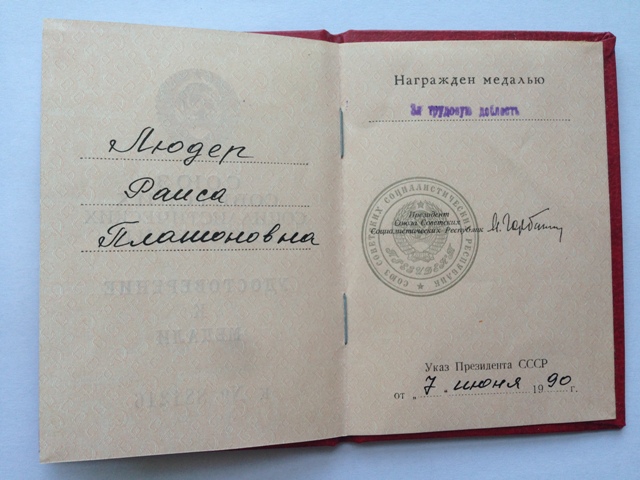 Людер
Раиса
Платоновна
Награжден медалью
За трудовую доблесть
СОЮЗ СОВЕТСКИХ СОЦИАЛИСТИЧЕСКИХ РЕСПУБЛИК
Президент
Союза Советских
Социалистических Республик
М. Горбачев
Указ Президента СССР
от „ 7 “ июня 1990 г.